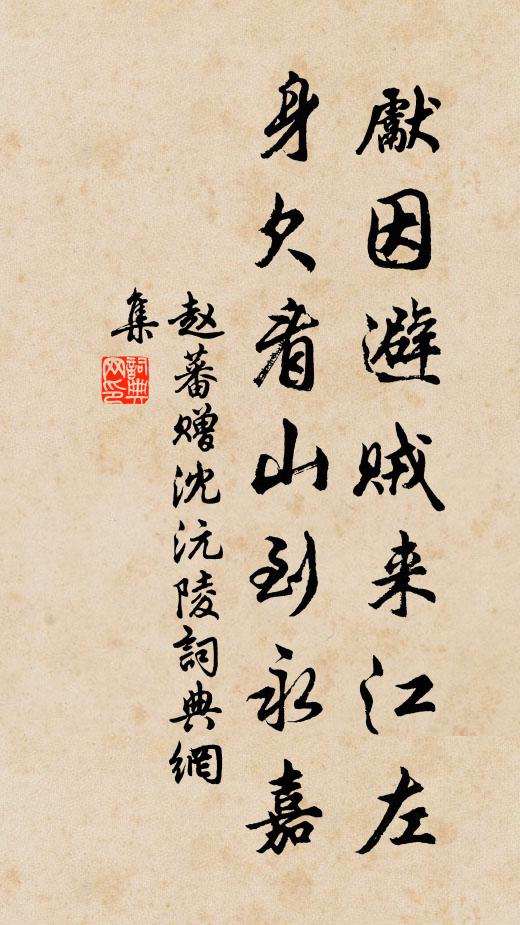 獻因避賊来江左
身欠看山到永嘉
赵蕃赠沈沅陵詞典網
集
詞典网印